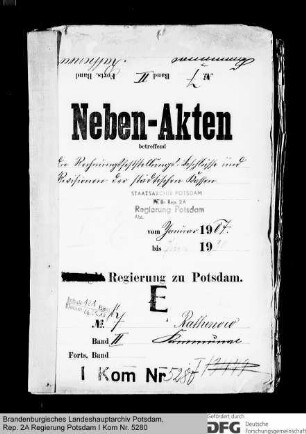 Neben-Akten
betreffend
die Rechnungsfeststellungs-Beschlüsse und
Revisionen der städtischen Kassen
STAATSARCHIV POTSDAM
Pr. Br. Rep. 2A
Regierung Potsdam
No.
vom Januar 1907.
bis 19
Regierung zu Potsdam.
E
№ 7 Rathenow
Band II Kommunal
Forts. Band
I Kom Nr. 5280
Brandenburgisches Landeshauptarchiv Potsdam,
Rep. 2A Regierung Potsdam I Kom Nr. 5280
gefördert durch
DFG Deutsche
Forschungsgemeinschaft